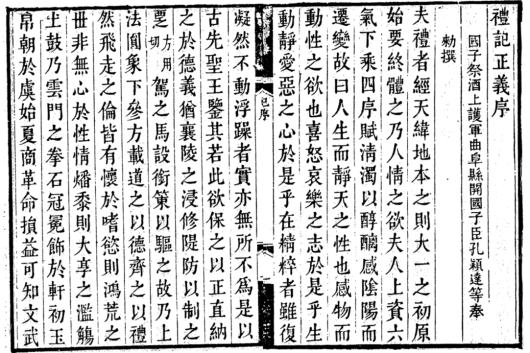 禮記正義序
國子祭酒上護軍曲阜縣開國子臣孔穎達等奉
勑撰
夫禮者經天緯地本之則大一之初原
始要終體之乃人情之欲夫人上資六
氣下乘四序賦清濁以醇醨感陰陽而
遷變故曰人生而靜天之性也感物而
動性之欲也喜怒哀樂之志於是乎生
動靜愛惡之心於是乎在精粹者雖復
凝然不動浮躁者實亦無所不為是以
古先聖王鑒其若此欲保之以正直納
之於德義猶襄陵之浸修隄防以制之
覂方用切駕之馬設銜策以驅之故乃上
法圓象下參方載道之以德齊之以禮
然飛走之倫皆有懷於嗜慾則鴻荒之
世非無心於性情燔黍則大享之濫觴
土鼓乃雲門之拳石冠冕飾於軒初玉
帛朝於虞始夏商革命損益可知文武